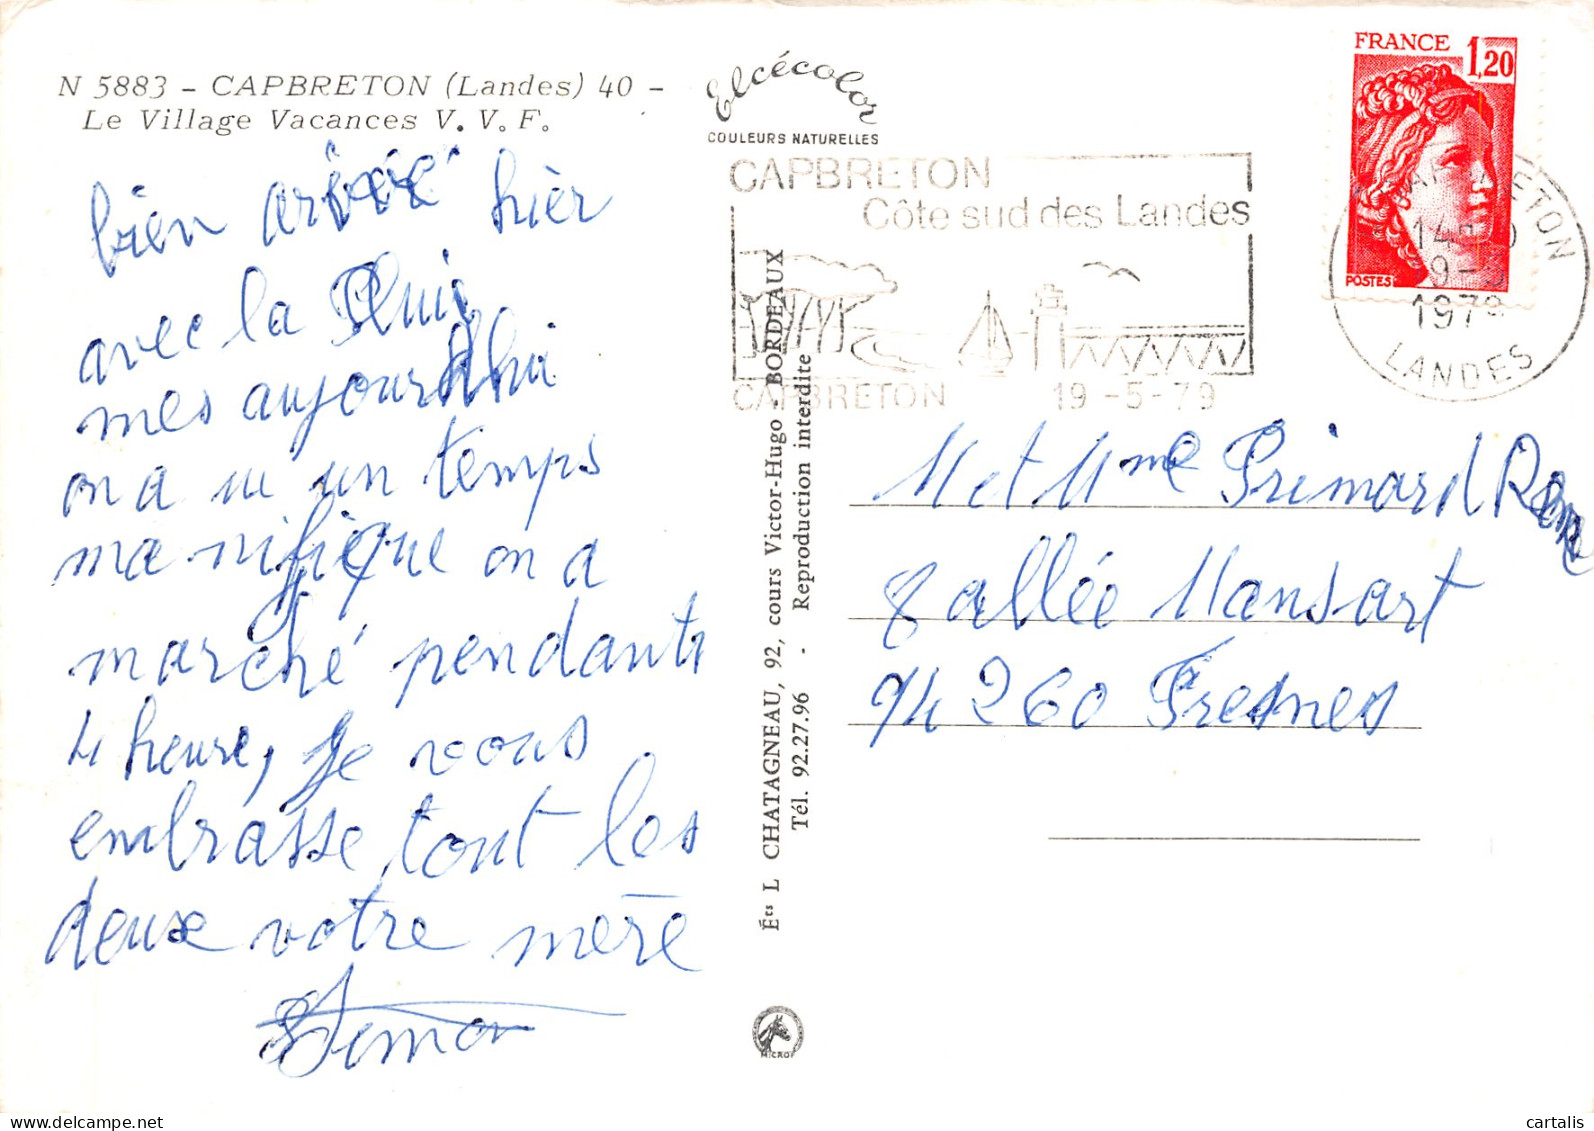 N 5883 - CAPBRETON (Landes) 40 -
Le Village Vacances V. V. F.
bien arivé hier
avec la Pluie
mes aujourdhui
on a eu un temps
ma nifique on a
marché pendant
4 heure, je vous
embrasse tout les
deux votre mère
Elcécolor
COULEURS NATURELLES
CAPBRETON
Côte sud des Landes
CAPBRETON 19-5-79
Éts L CHATAGNEAU, 92, cours Victor-Hugo - BORDEAUX
Tél. 92.27.96 - Reproduction interdite
MICRO
FRANCE 1,20
POSTES
CAPBRETON
1979
LANDES
M et Mme Primard René
8 allée Mansart
94 260 Fresnes
delcampe.net
cartalis